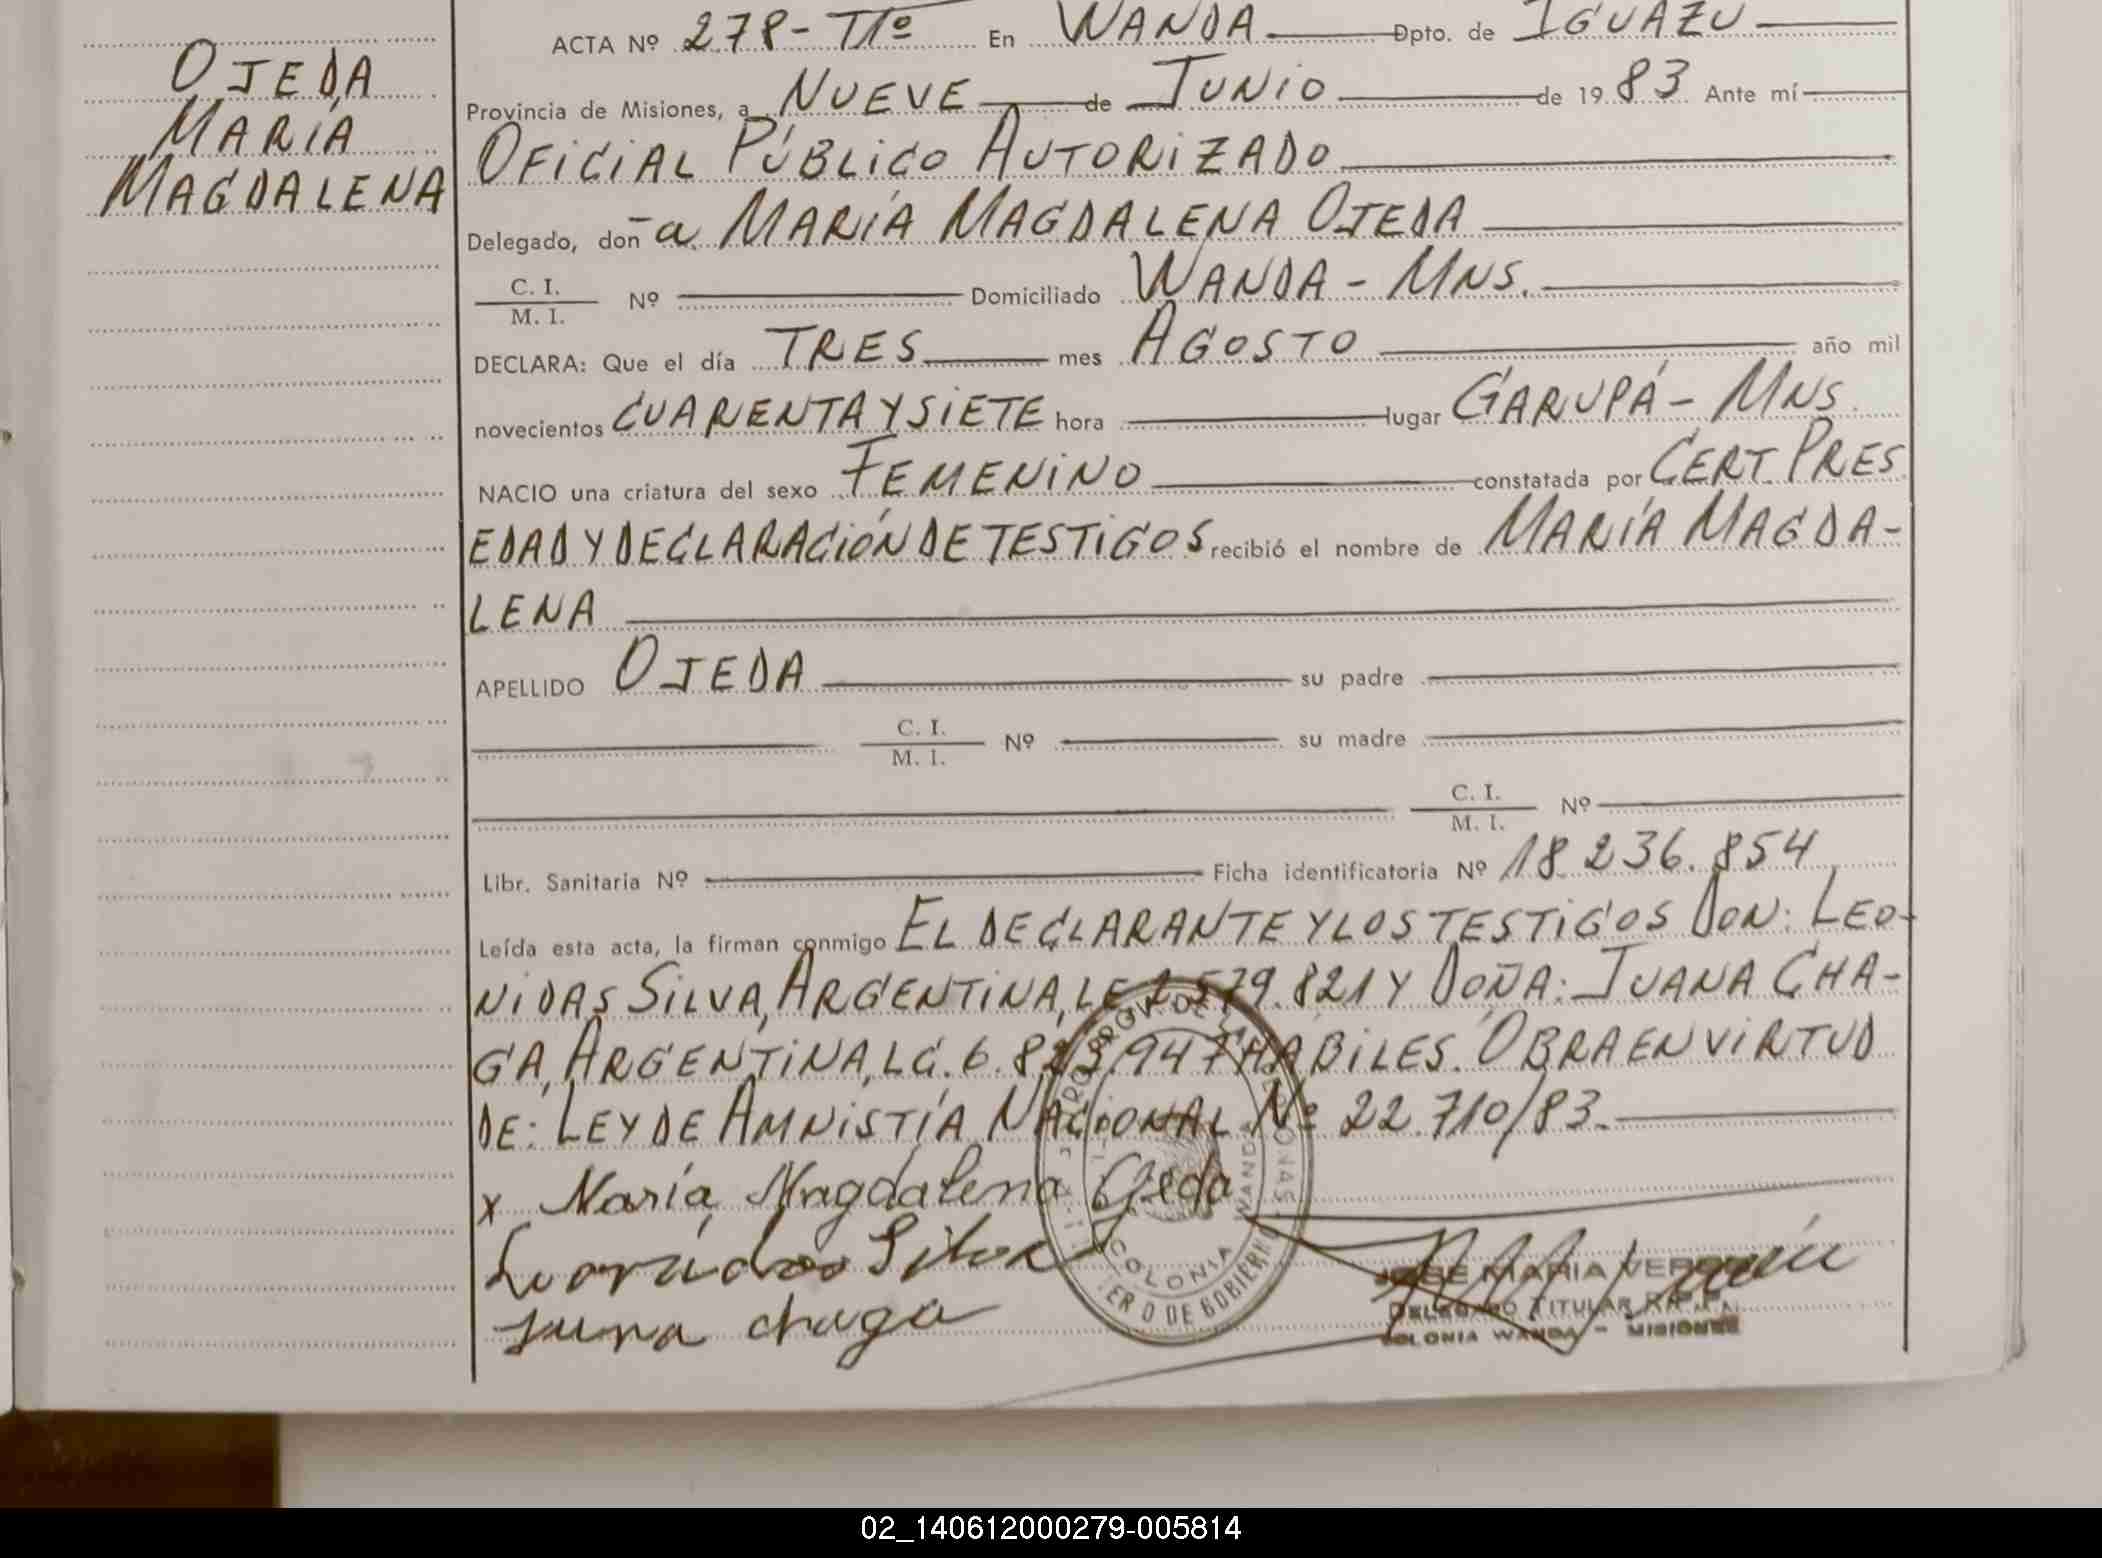 OJEDA
MARÍA
MAGDALENA
ACTA Nº 278- Tº 1º En WANDA Dpto. de IGUAZU
Provincia de Misiones, a NUEVE de JUNIO de 19 83 Ante mí
OFICIAL PÚBLICO AUTORIZADO
Delegado, don-a MARÍA MAGDALENA OJEDA
C. I.
M. I. Nº Domiciliado WANDA - MNS.
DECLARA: Que el día TRES mes AGOSTO año mil
novecientos CUARENTA Y SIETE hora lugar GARUPÁ - MNS.
NACIO una criatura del sexo FEMENINO constatada por CERT. PRES
EDAD Y DECLARACIÓN DE TESTIGOS recibió el nombre de MARÍA MAGDA-
LENA
APELLIDO OJEDA su padre
C. I.
M. I. Nº su madre
C. I.
M. I. Nº
Libr. Sanitaria Nº Ficha identificatoria Nº 18.236.854
Leída esta acta, la firman conmigo EL DECLARANTE Y LOS TESTIGOS DON: LEO-
NIDAS SILVA, ARGENTINA, LE 2.579.821 Y DOÑA: JUANA CHA-
GA, ARGENTINA, LC. 6.823.947 HABILES. OBRA EN VIRTUD
DE: LEY DE AMNISTÍA NACIONAL Nº 22.710/83.
x María Magdalena Ojeda
Leonidas Silva
Juana chaga
PROV. DE
COLONIA
WANDA
DE GOBIERNO
JOSE MARIA
DELEGADO TITULAR
COLONIA WANDA - MISIONES
02_140612000279-005814